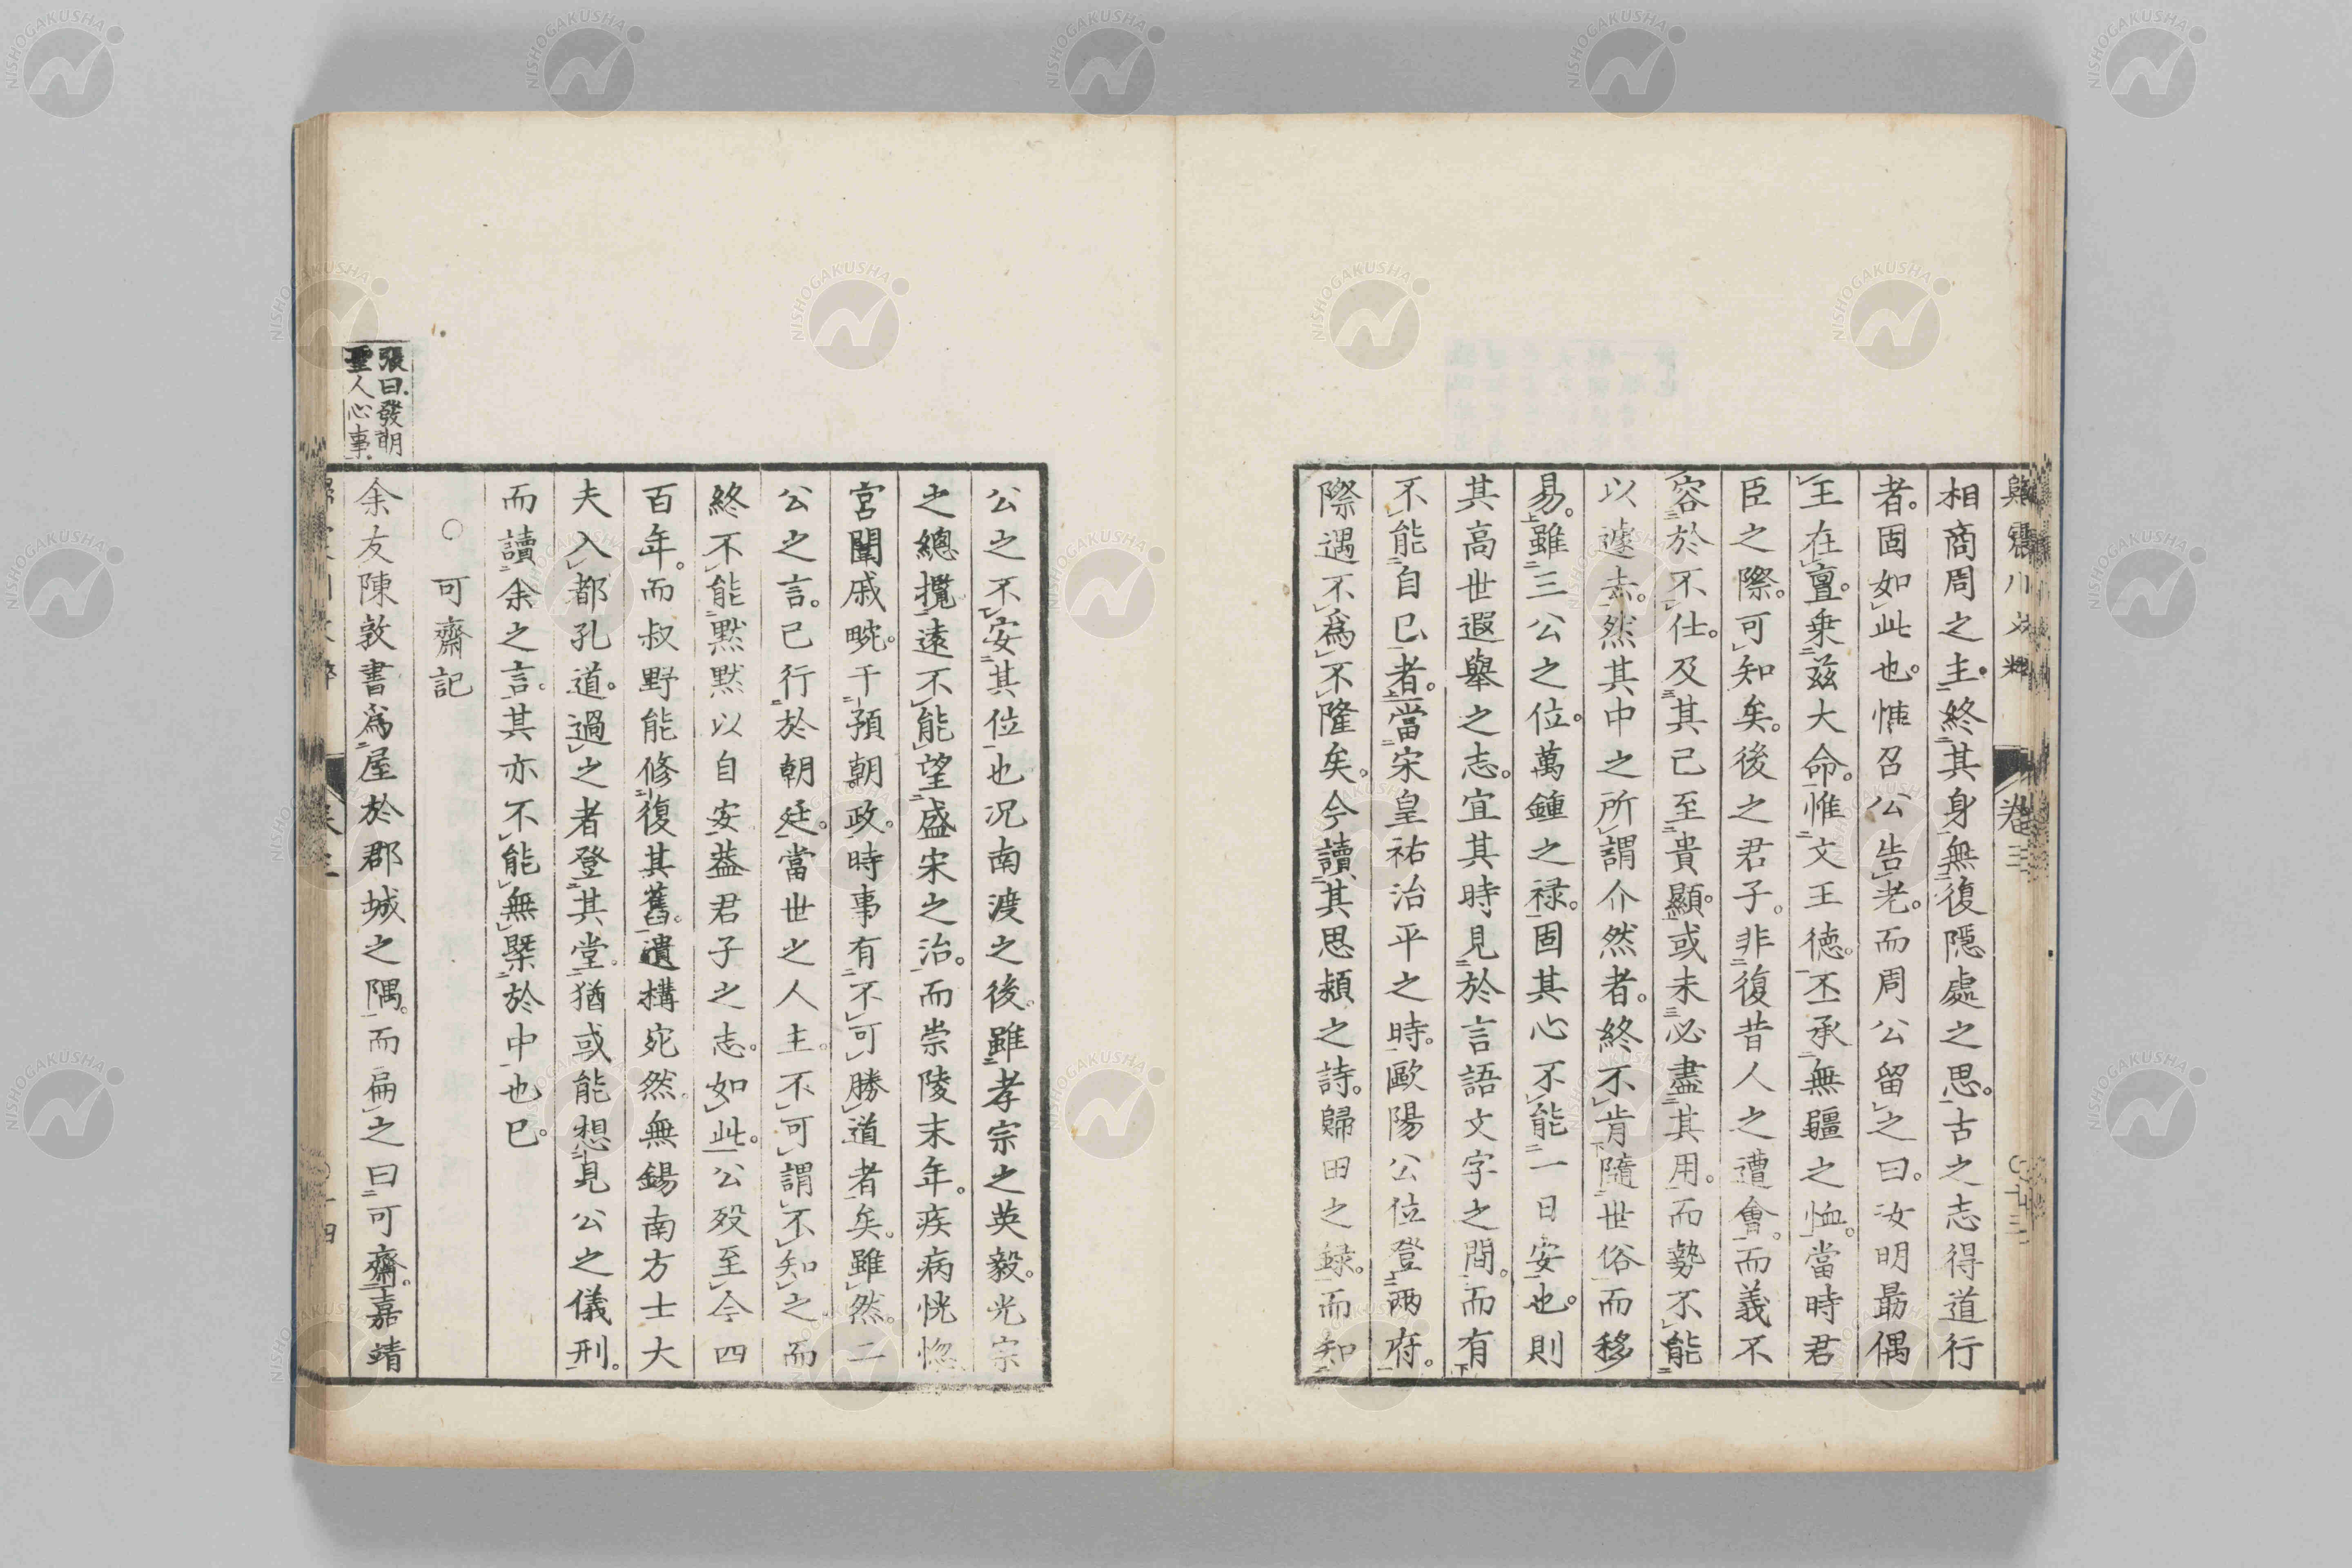 相商周之主。終其身無復隱處之思。古之志得道行
者。固如此也。惟召公告老。而周公留之曰。汝明勗偶
王在亶。乗茲大命。惟文王德。丕承無疆之恤。當時君
臣之際。可知矣。後之君子。非復昔人之遭會。而義不
容於不仕。及其已至貴顯。或未必盡其用。而勢不能
以遽去。然其中之所謂介然者。終不肯隨世俗而移
易。雖三公之位。萬鍾之禄。固其心不能一日安也。則
其高世遐舉之志。宜其時見於言語文字之間。而有
不能自已者。當宋皇祐治平之時。歐陽公位登兩府。
際遇不為不隆矣。今讀其思潁之詩。歸田之録。而知
公之不安其位也况南渡之後。雖孝宗之英毅。光宗
之總攬。遠不能望盛宋之治。而崇陵末年。疾病恍惚。
宮闈戚畹。干預朝政。時事有不可勝道者矣。雖然。二
公之言。已行於朝廷。當世之人主。不可謂不知之而
終不能默默以自安葢君子之志。如此。公歿至今四
百年。而叔野能修復其舊。遺構宛然。無錫南方士大
夫入都孔道。過之者登其堂。猶或能想見公之儀刑。
而讀余之言。其亦不能無槩於中也已。
○可齋記
張曰。發明
聖人心事。
余友陳敦書為屋於郡城之隅。而扁之曰可齋。嘉靖